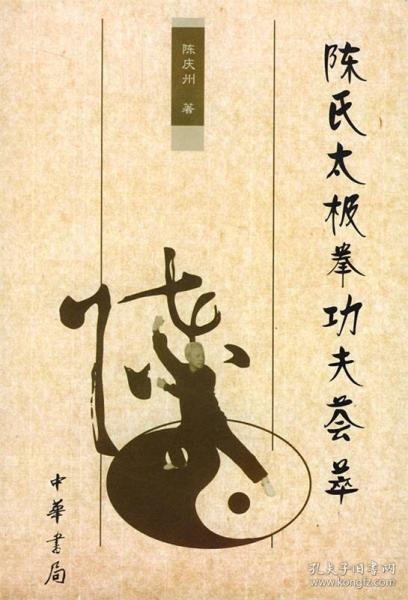 陈氏太极拳功夫荟萃
陈庆州 著
中華書局
孔夫子旧书网
www.kongfz.com